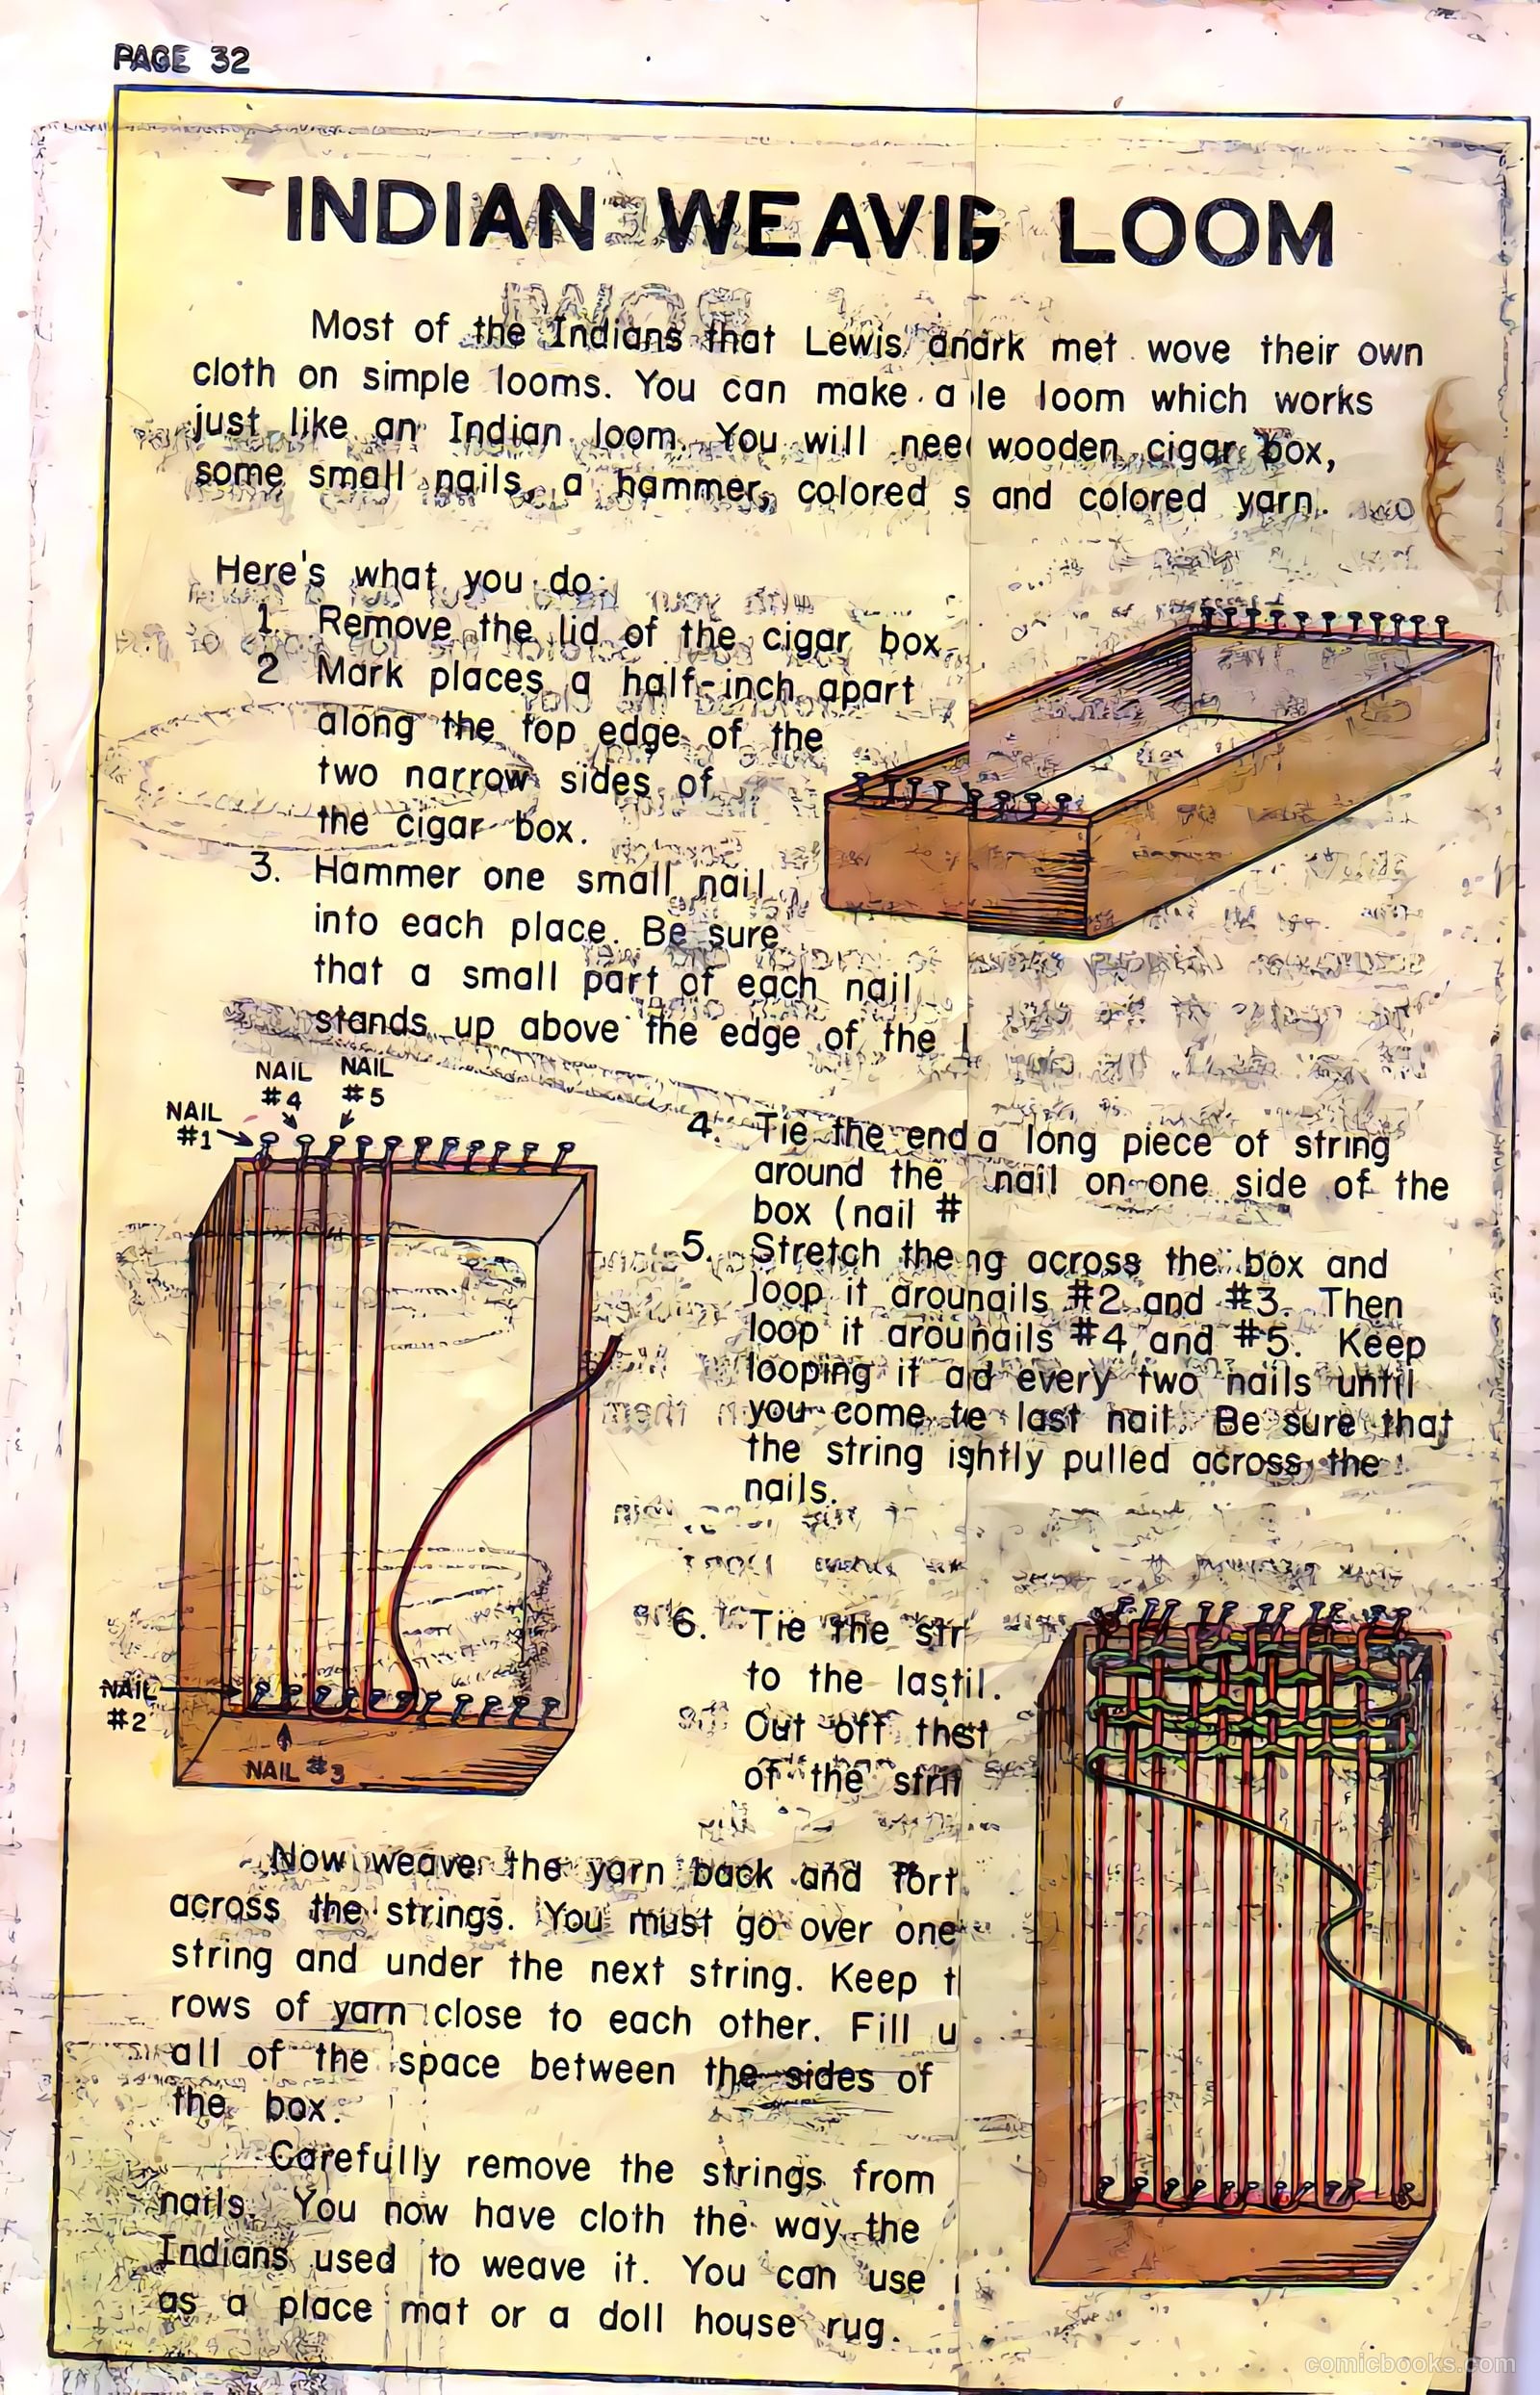 PAGE 32
INDIAN WEAVIG LOOM
Most of the Indians that Lewis anark met wove their own
cloth on simple looms. You can make a le loom which works
just like an Indian loom. You will nee wooden cigar box,
some small nails, a hammer, colored s and colored yarn.
Here's what you do:
1. Remove the lid of the cigar box
2 Mark places a half-inch apart
along the top edge of the
two narrow sides of
the cigar box.
3. Hammer one small nail
into each place. Be sure
that a small part of each nail
stands up above the edge of the
NAIL #1
NAIL #4
NAIL #5
NAIL #2
NAIL #3
4. Tie the end a long piece of string
around the nail on one side of the
box (nail #
5. Stretch the ng across the box and
loop it arounails #2 and #3. Then
loop it arounails #4 and #5. Keep
looping it ad every two nails until
you come te last nail. Be sure that
the string ightly pulled across the
nails.
6. Tie the str
to the lastil.
Out off thest
of the strin
Now weave the yarn back and fort
across the strings. You must go over one
string and under the next string. Keep t
rows of yarn close to each other. Fill u
all of the space between the sides of
the box.
Carefully remove the strings from
nails. You now have cloth the way the
Indians used to weave it. You can use
as a place mat or a doll house rug.
comicbooks.com